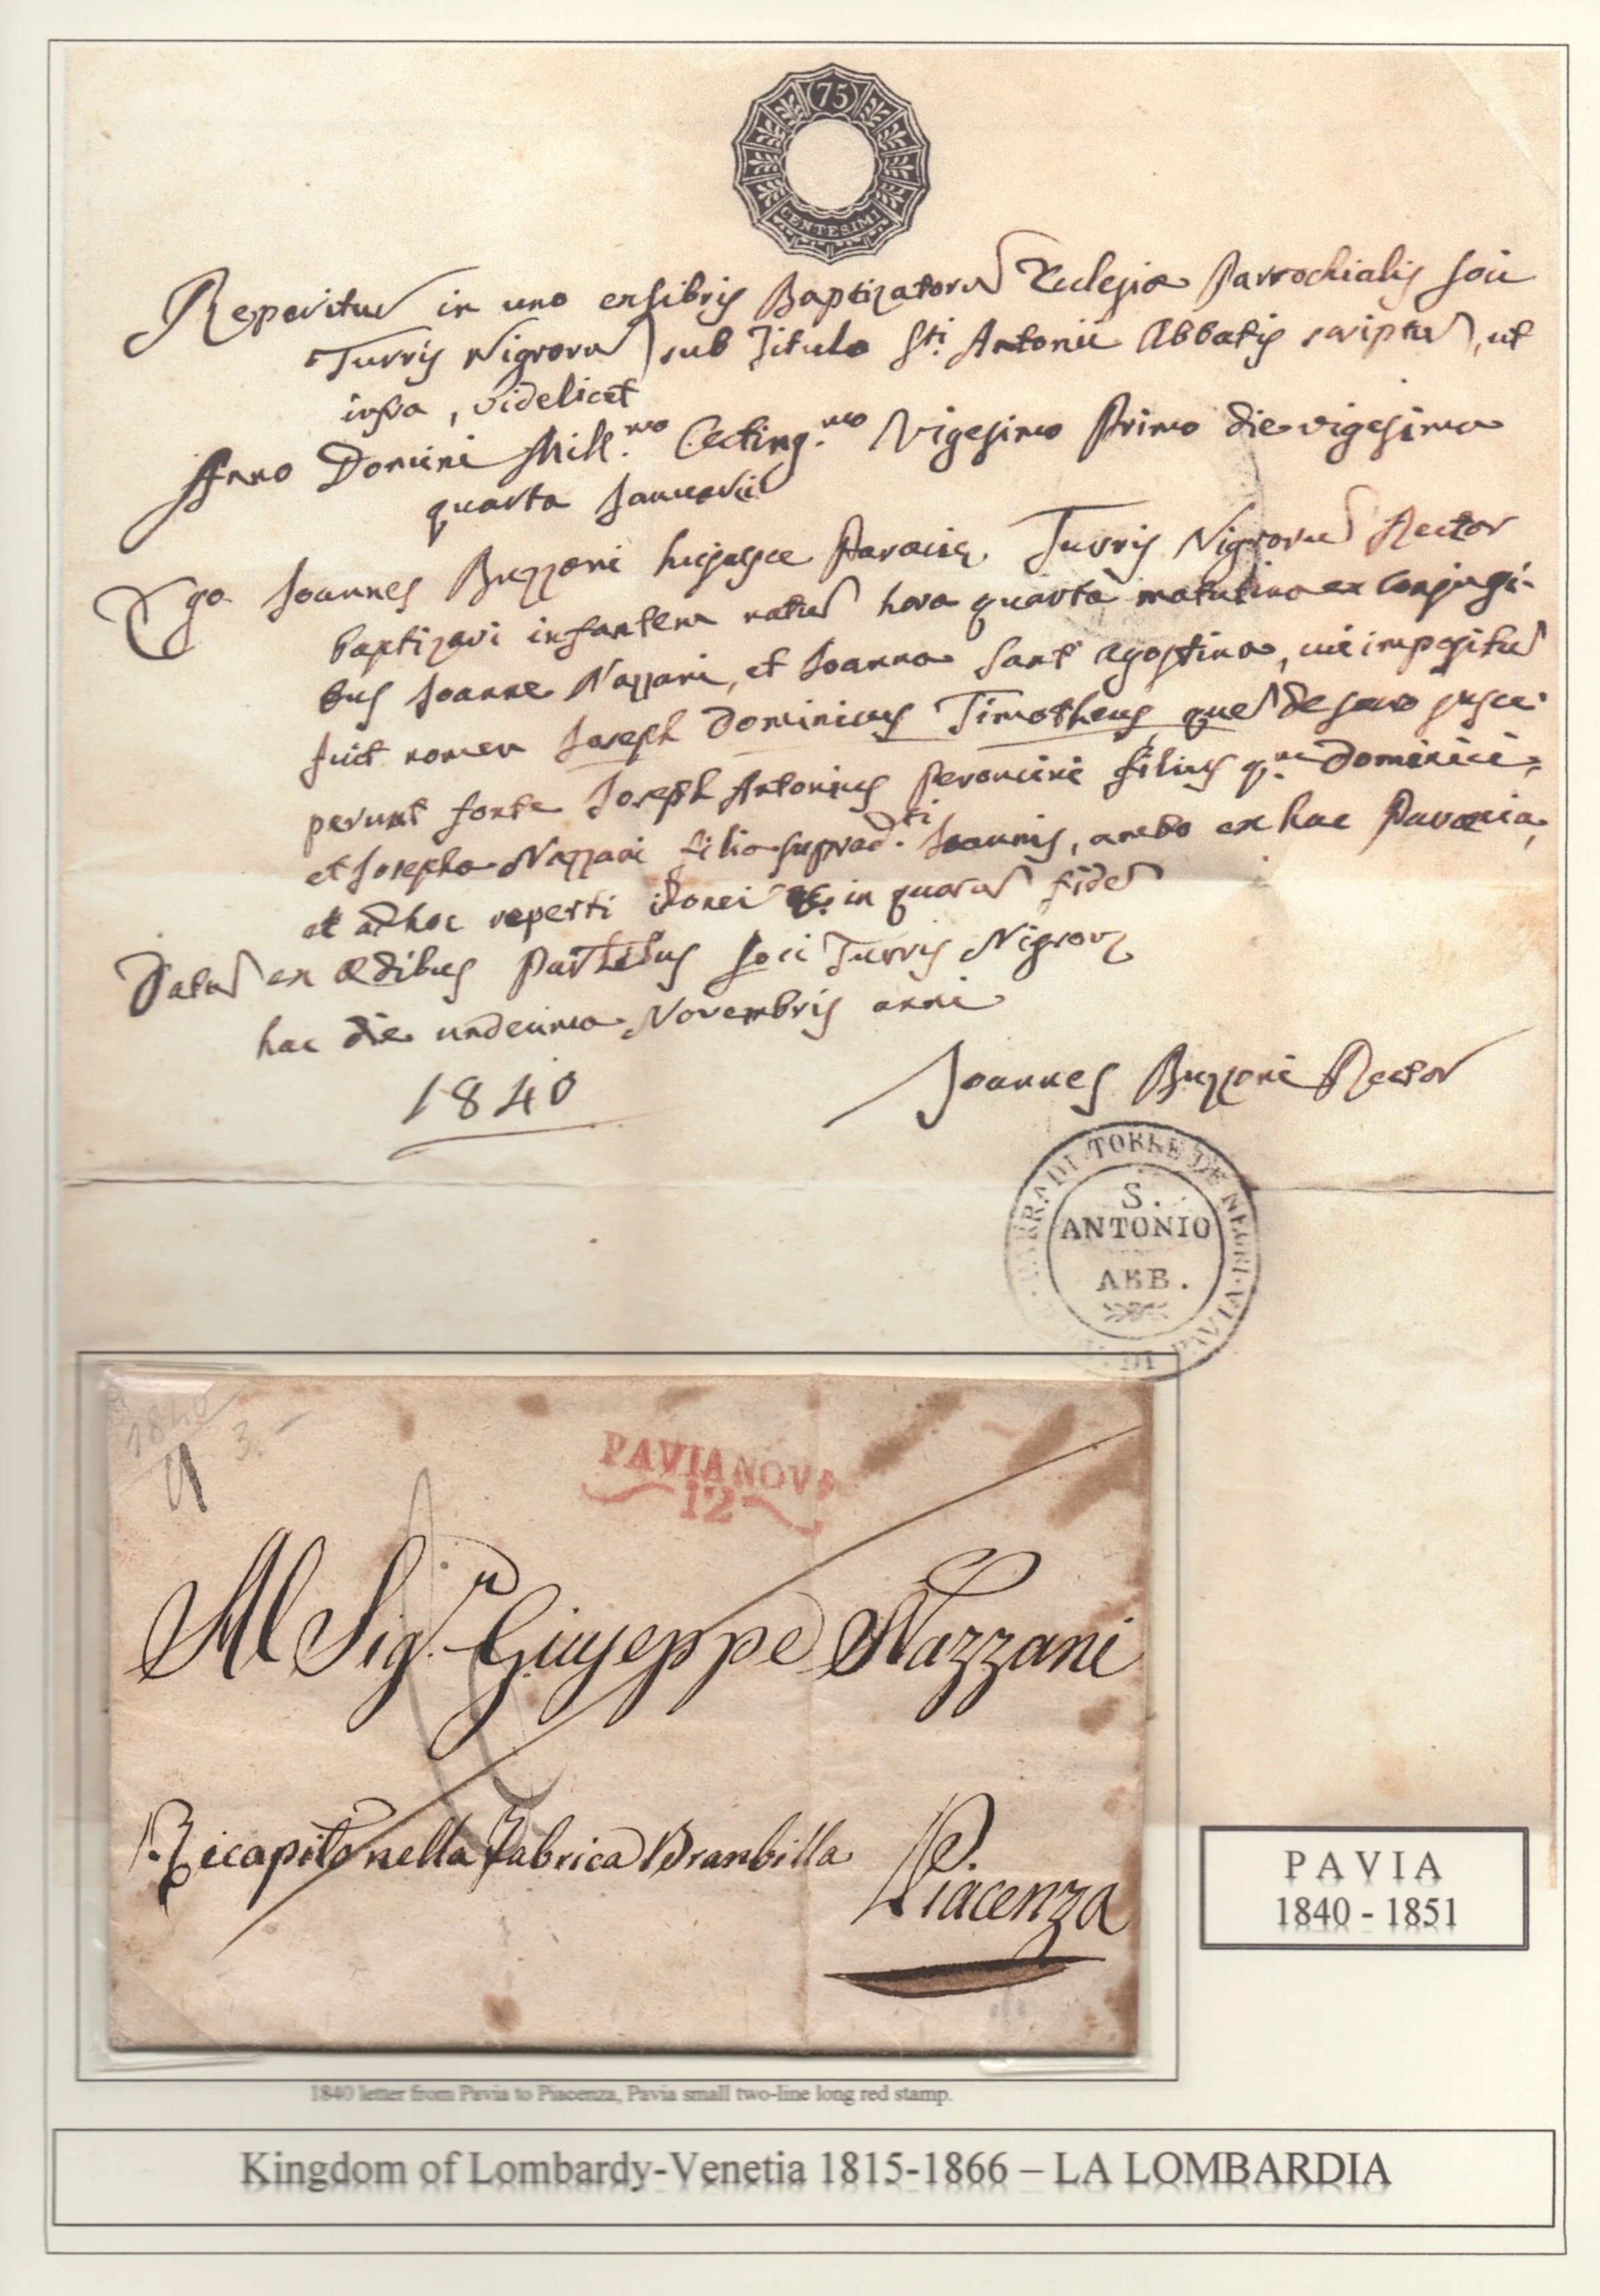 75
CENTESIMI
Reperitur in uno ex libris Baptizatorum Ecclesiæ Parrochialis loci
Turris Nigrorum sub Titulo Sti. Antonii Abbatis scriptum, ut
infra, videlicet
Anno Domini Mill.mo Octing.mo Vigesimo Primo die vigesima
quarta Januarii
Ego Joannes Buzzoni hujusce Paraciæ Turris Nigrorum Rector
baptizavi infantem natum hora quarta matutina ex conjugi-
bus Joanne Nazzani, et Joanna Sant' Agostino, cui impositum
fuit nomen Joseph Dominicus Timotheus, quem de sacro susce-
perunt fonte Joseph Antonius Peroncini filius qm. Dominici
et Josepha Nazzani filia suprad.ti Joannis, ambo ex hac Paræcia,
et ad hoc reperti idonei &. in quorum fidem
Datum ex Ædibus Par.libus loci Turris Nigror
hac die undecima Novembris anni
1840
Joannes Buzzoni Rector
PARRA DI TORRE DE NEGRI
S.
ANTONIO
ABB.
DI PAVIA
1840
3.-
PAVIA NOVE
12
Al Sigr. Giuseppe Nazzani
Ricapito nella Fabrica Branbilla
Piacenza
PAVIA
1840 - 1851
1840 letter from Pavia to Piacenza, Pavia small two-line long red stamp.
Kingdom of Lombardy-Venetia 1815-1866 – LA LOMBARDIA